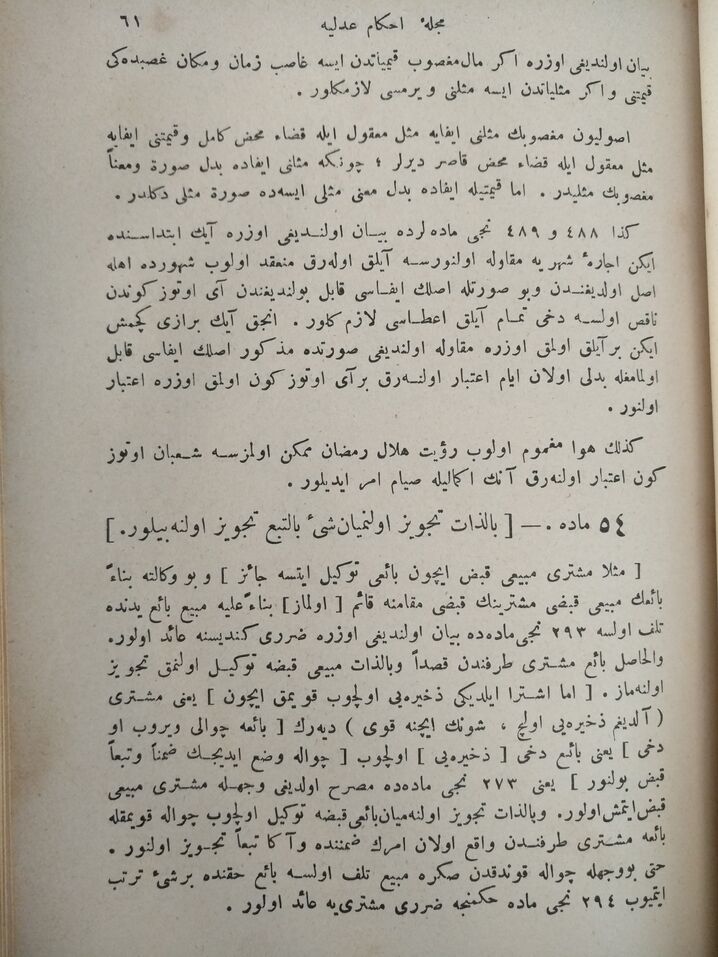 مجلۀ احكام عدلیه ٦١
بیان اولندیغی اوزره اكر مال مغصوب قیمیاتدن ایسه غاصب زمان ومكان غصبده‌كی
قیمتنی واكر مثلیاتدن ایسه مثلنی ویرمسی لازمكلور .
اصولیون مغصوبك مثلنی ایفایه مثل معقول ایله قضاء محض كامل وقیمتنی ایفایه
مثل معقول ایله قضاء محض قاصر دیرلر ؛ چونكه مثلنی ایفاده بدل صورة ومعناً
مغصوبك مثلیدر . اما قیمتیله ایفاده بدل معنی مثلی ایسه‌ده صورة مثلی دكلدر .
كذا ٤٨٨ و ٤٨٩ نجی ماده‌لرده بیان اولندیغی اوزره آیك ابتداسنده
ایكن اجارۀ شهریه مقاوله اولنورسه آیلق اوله‌رق منعقد اولوب شهورده اهله
اصل اولدیغندن وبو صورتله اصلك ایفاسی قابل بولندیغندن آی اوتوز كوندن
ناقص اولسه دخی تمام آیلق اعطاسی لازم كلور . انجق آیك برازی كچمش
ایكن بر آیلق اولمق اوزره مقاوله اولندیغی صورتده مذكور اصلك ایفاسی قابل
اولمامغله بدلی اولان ایام اعتبار اولنه‌رق بر آی اوتوز كون اولمق اوزره اعتبار
اولنور .
كذلك هوا مغموم اولوب رؤیت هلال رمضان ممكن اولمزسه شعبان اوتوز
كون اعتبار اولنه‌رق آنك اكمالیله صیام امر ایدیلور .
٥٤ ماده . — [ بالذات تجویز اولنمیان شیٔ بالتبع تجویز اولنه‌بیلور . ]
[ مثلا مشتری مبیعی قبض ایچون بائعی توكیل ایتسه جائز ] و بو وكالته بناءً
بائعك مبیعی قبضی مشترینك قبضی مقامنه قائم [ اولماز ] بناءً علیه مبیع بائع یدنده
تلف اولسه ٢٩٣ نجی ماده‌ده بیان اولندیغی اوزره ضرری كندیسنه عائد اولور.
والحاصل بائع مشتری طرفندن قصداً وبالذات مبیعی قبضه توكیل اولنمق تجویز
اولنه‌ماز . [ اما اشترا ایلدیكی ذخیره‌یی اولچوب قویمق ایچون ] یعنی مشتری
( آلدیغم ذخیره‌یی اولچ ، شونك ایچنه قوی ) دیه‌رك [ بائعه چوالی ویروب او
دخی ] یعنی بائع دخی [ ذخیره‌یی ] اولچوب [ چواله وضع ایدیجك ضمناً وتبعاً
قبض بولنور ] یعنی ٢٧٣ نجی ماده‌ده مصرح اولدیغی وجهله مشتری مبیعی
قبض ایتمش اولور. وبالذات تجویز اولنه‌میان بائعی قبضه توكیل اولچوب چواله قویمقله
بائعه مشتری طرفندن واقع اولان امرك ضمننده و آكا تبعاً تجویز اولنور .
حتی بووجهله چواله قوندقدن صكره مبیع تلف اولسه بائع حقنده برشیٔ ترتب
ایتمیوب ٢٩٤ نجی ماده حكمنجه ضرری مشتری‌یه عائد اولور .